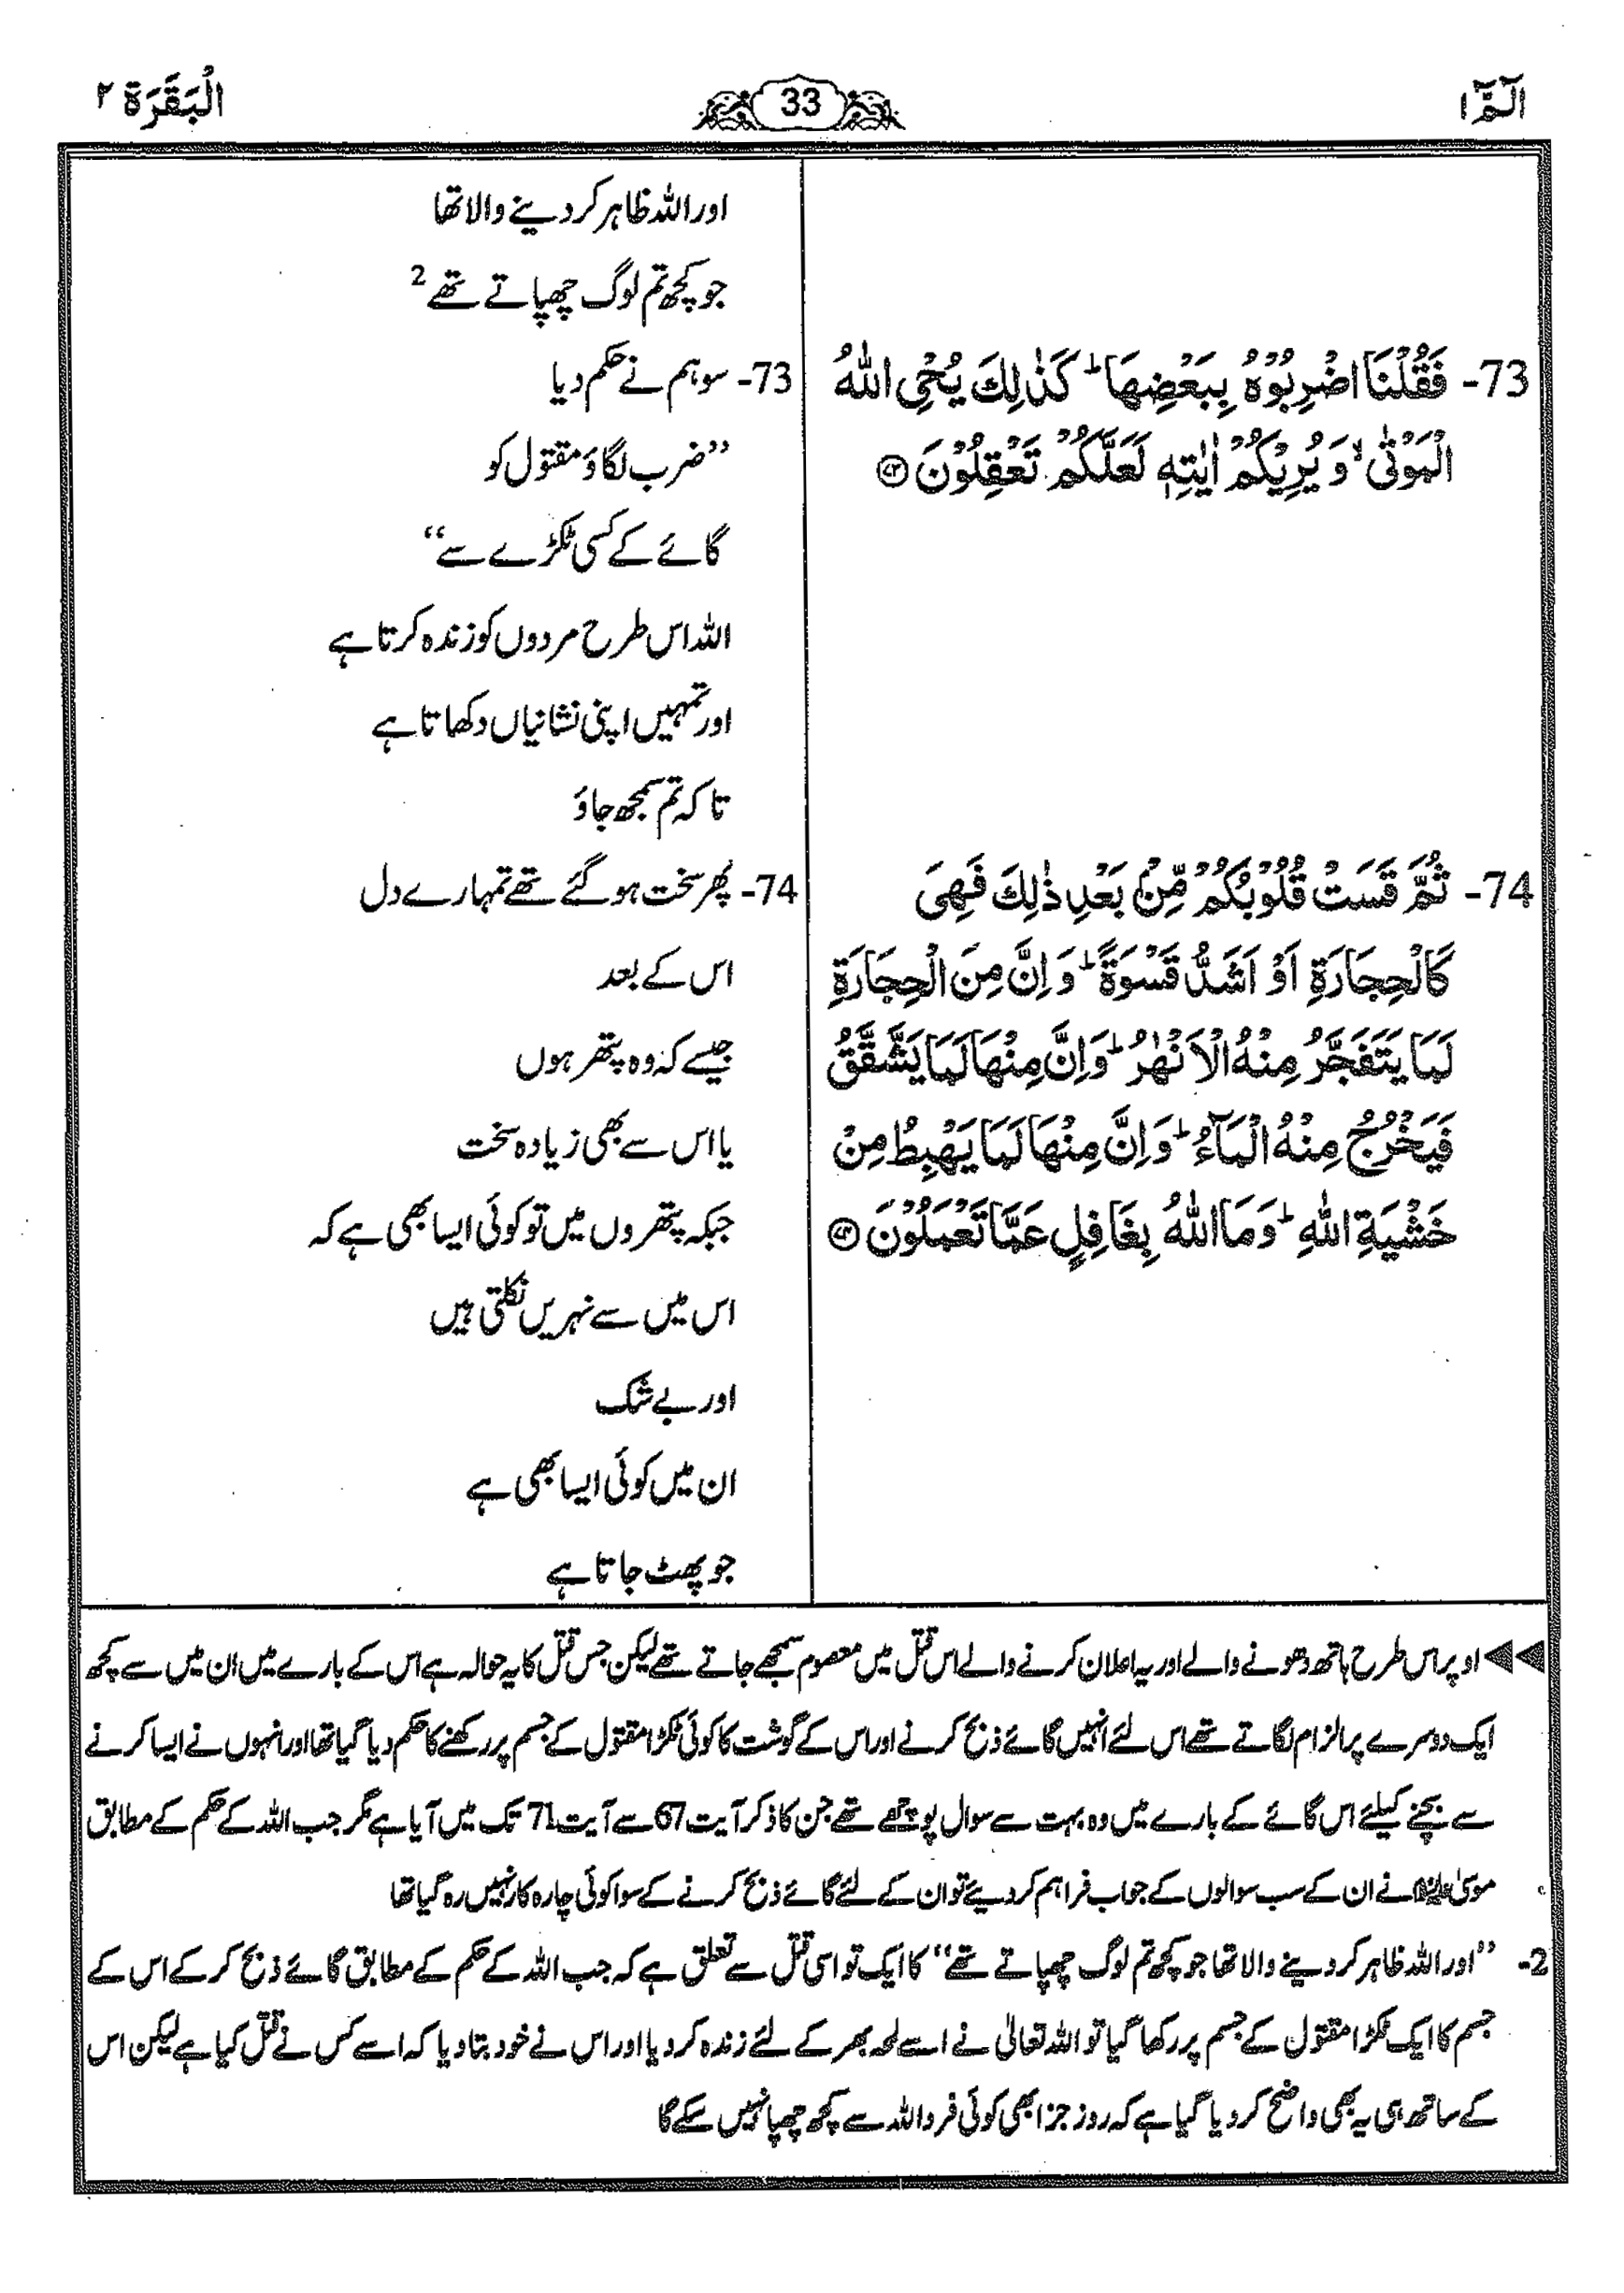 الٓمّٓ ۱
33
الْبَقَرَة ۲
73- فَقُلْنَا اضْرِبُوْهُ بِبَعْضِهَا ؕ كَذٰلِكَ يُحْيِ اللّٰهُ
الْمَوْتٰى ۙ وَ يُرِيْكُمْ اٰيٰتِهٖ لَعَلَّكُمْ تَعْقِلُوْنَ ۝۷۳
74- ثُمَّ قَسَتْ قُلُوْبُكُمْ مِّنْۢ بَعْدِ ذٰلِكَ فَهِيَ
كَالْحِجَارَةِ اَوْ اَشَدُّ قَسْوَةً ؕ وَ اِنَّ مِنَ الْحِجَارَةِ
لَمَا يَتَفَجَّرُ مِنْهُ الْاَنْهٰرُ ؕ وَ اِنَّ مِنْهَا لَمَا يَشَّقَّقُ
فَيَخْرُجُ مِنْهُ الْمَآءُ ؕ وَ اِنَّ مِنْهَا لَمَا يَهْبِطُ مِنْ
خَشْيَةِ اللّٰهِ ؕ وَ مَا اللّٰهُ بِغَافِلٍ عَمَّا تَعْمَلُوْنَ ۝۷۴
اور اللہ ظاہر کر دینے والا تھا
جو کچھ تم لوگ چھپاتے تھے 2
73- سو ہم نے حکم دیا
”ضرب لگاؤ مقتول کو
گائے کے کسی ٹکڑے سے“
اللہ اس طرح مردوں کو زندہ کرتا ہے
اور تمہیں اپنی نشانیاں دکھاتا ہے
تاکہ تم سمجھ جاؤ
74- پھر سخت ہو گئے تھے تمہارے دل
اس کے بعد
جیسے کہ وہ پتھر ہوں
یا اس سے بھی زیادہ سخت
جبکہ پتھروں میں تو کوئی ایسا بھی ہے کہ
اس میں سے نہریں نکلتی ہیں
اور بے شک
ان میں کوئی ایسا بھی ہے
جو پھٹ جاتا ہے
◀◀ اوپر اس طرح ہاتھ دھونے والے اور یہ اعلان کرنے والے اس قتل میں معصوم سمجھے جاتے تھے لیکن جس قتل کا یہ حوالہ ہے اس کے بارے میں ان میں سے کچھ
ایک دوسرے پر الزام لگاتے تھے اس لئے انہیں گائے ذبح کرنے اور اس کے گوشت کا کوئی ٹکڑا مقتول کے جسم پر رکھنے کا حکم دیا گیا تھا اور انہوں نے ایسا کرنے
سے بچنے کیلئے اس گائے کے بارے میں وہ بہت سے سوال پوچھے تھے جن کا ذکر آیت 67 سے آیت 71 تک میں آیا ہے مگر جب اللہ کے حکم کے مطابق
موسیٰ علیہ السلام نے ان کے سب سوالوں کے جواب فراہم کر دیئے تو ان کے لئے گائے ذبح کرنے کے سوا کوئی چارہ کار نہیں رہ گیا تھا
2- ”اور اللہ ظاہر کر دینے والا تھا جو کچھ تم لوگ چھپاتے تھے“ کا ایک تو اسی قتل سے تعلق ہے کہ جب اللہ کے حکم کے مطابق گائے ذبح کر کے اس کے
جسم کا ایک ٹکڑا مقتول کے جسم پر رکھا گیا تو اللہ تعالیٰ نے اسے لمحہ بھر کے لئے زندہ کر دیا اور اس نے خود بتا دیا کہ اسے کس نے قتل کیا ہے لیکن اس
کے ساتھ ہی یہ بھی واضح کر دیا گیا ہے کہ روز جزا بھی کوئی فرد اللہ سے کچھ چھپا نہیں سکے گا